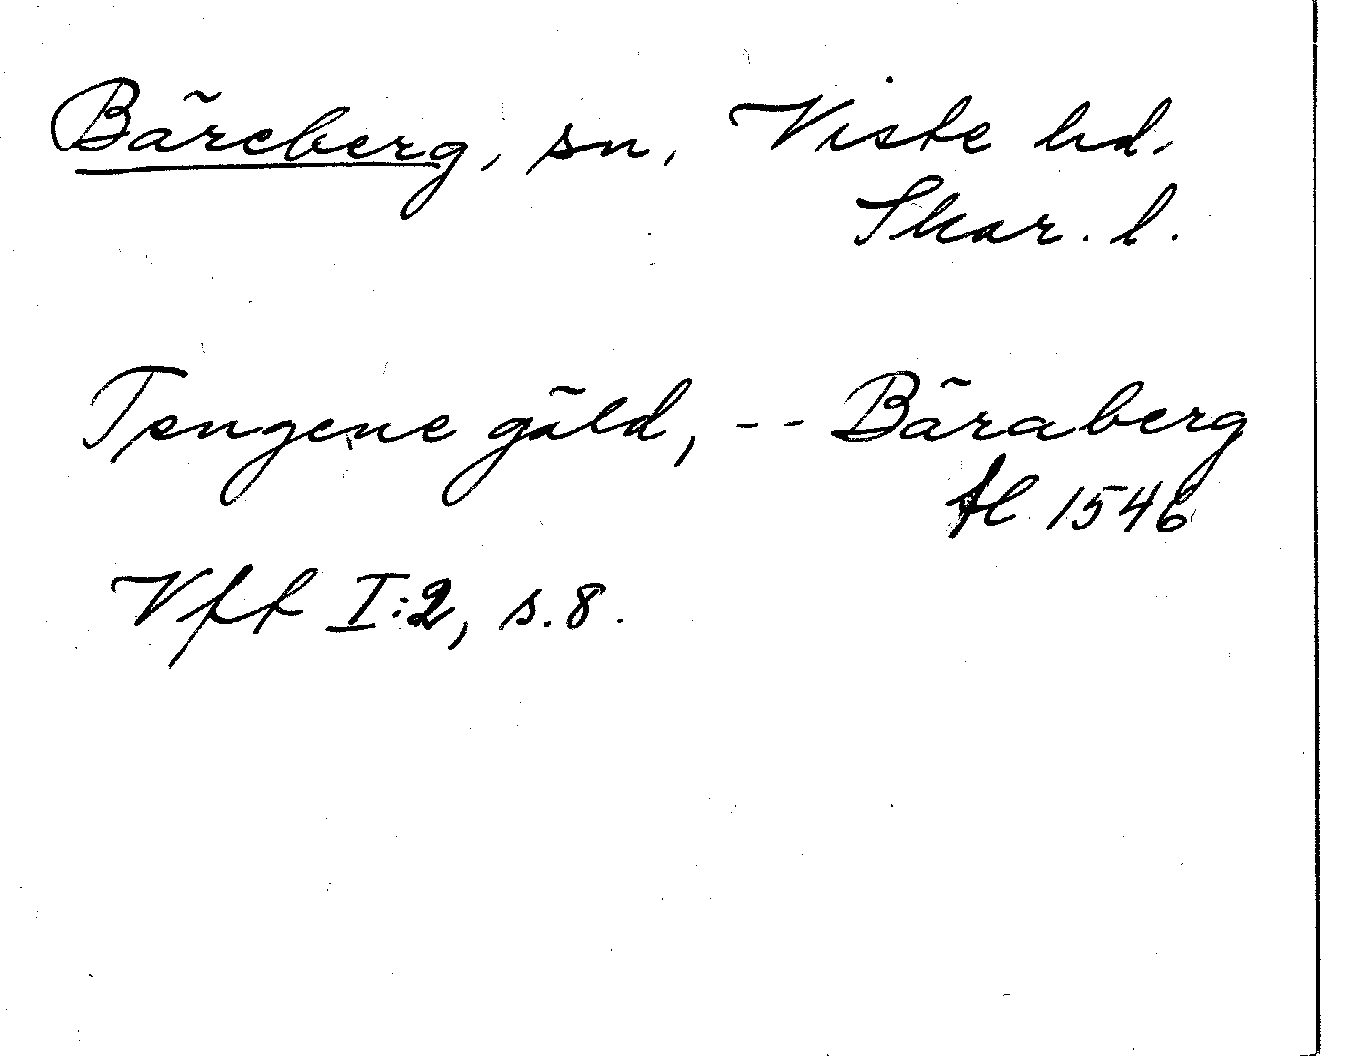 Bäreberg, sn, Viste hd,
Skar. l.
Tengene gäld, -- Bäraberg
fl 1546
Vff I:2, s. 8.